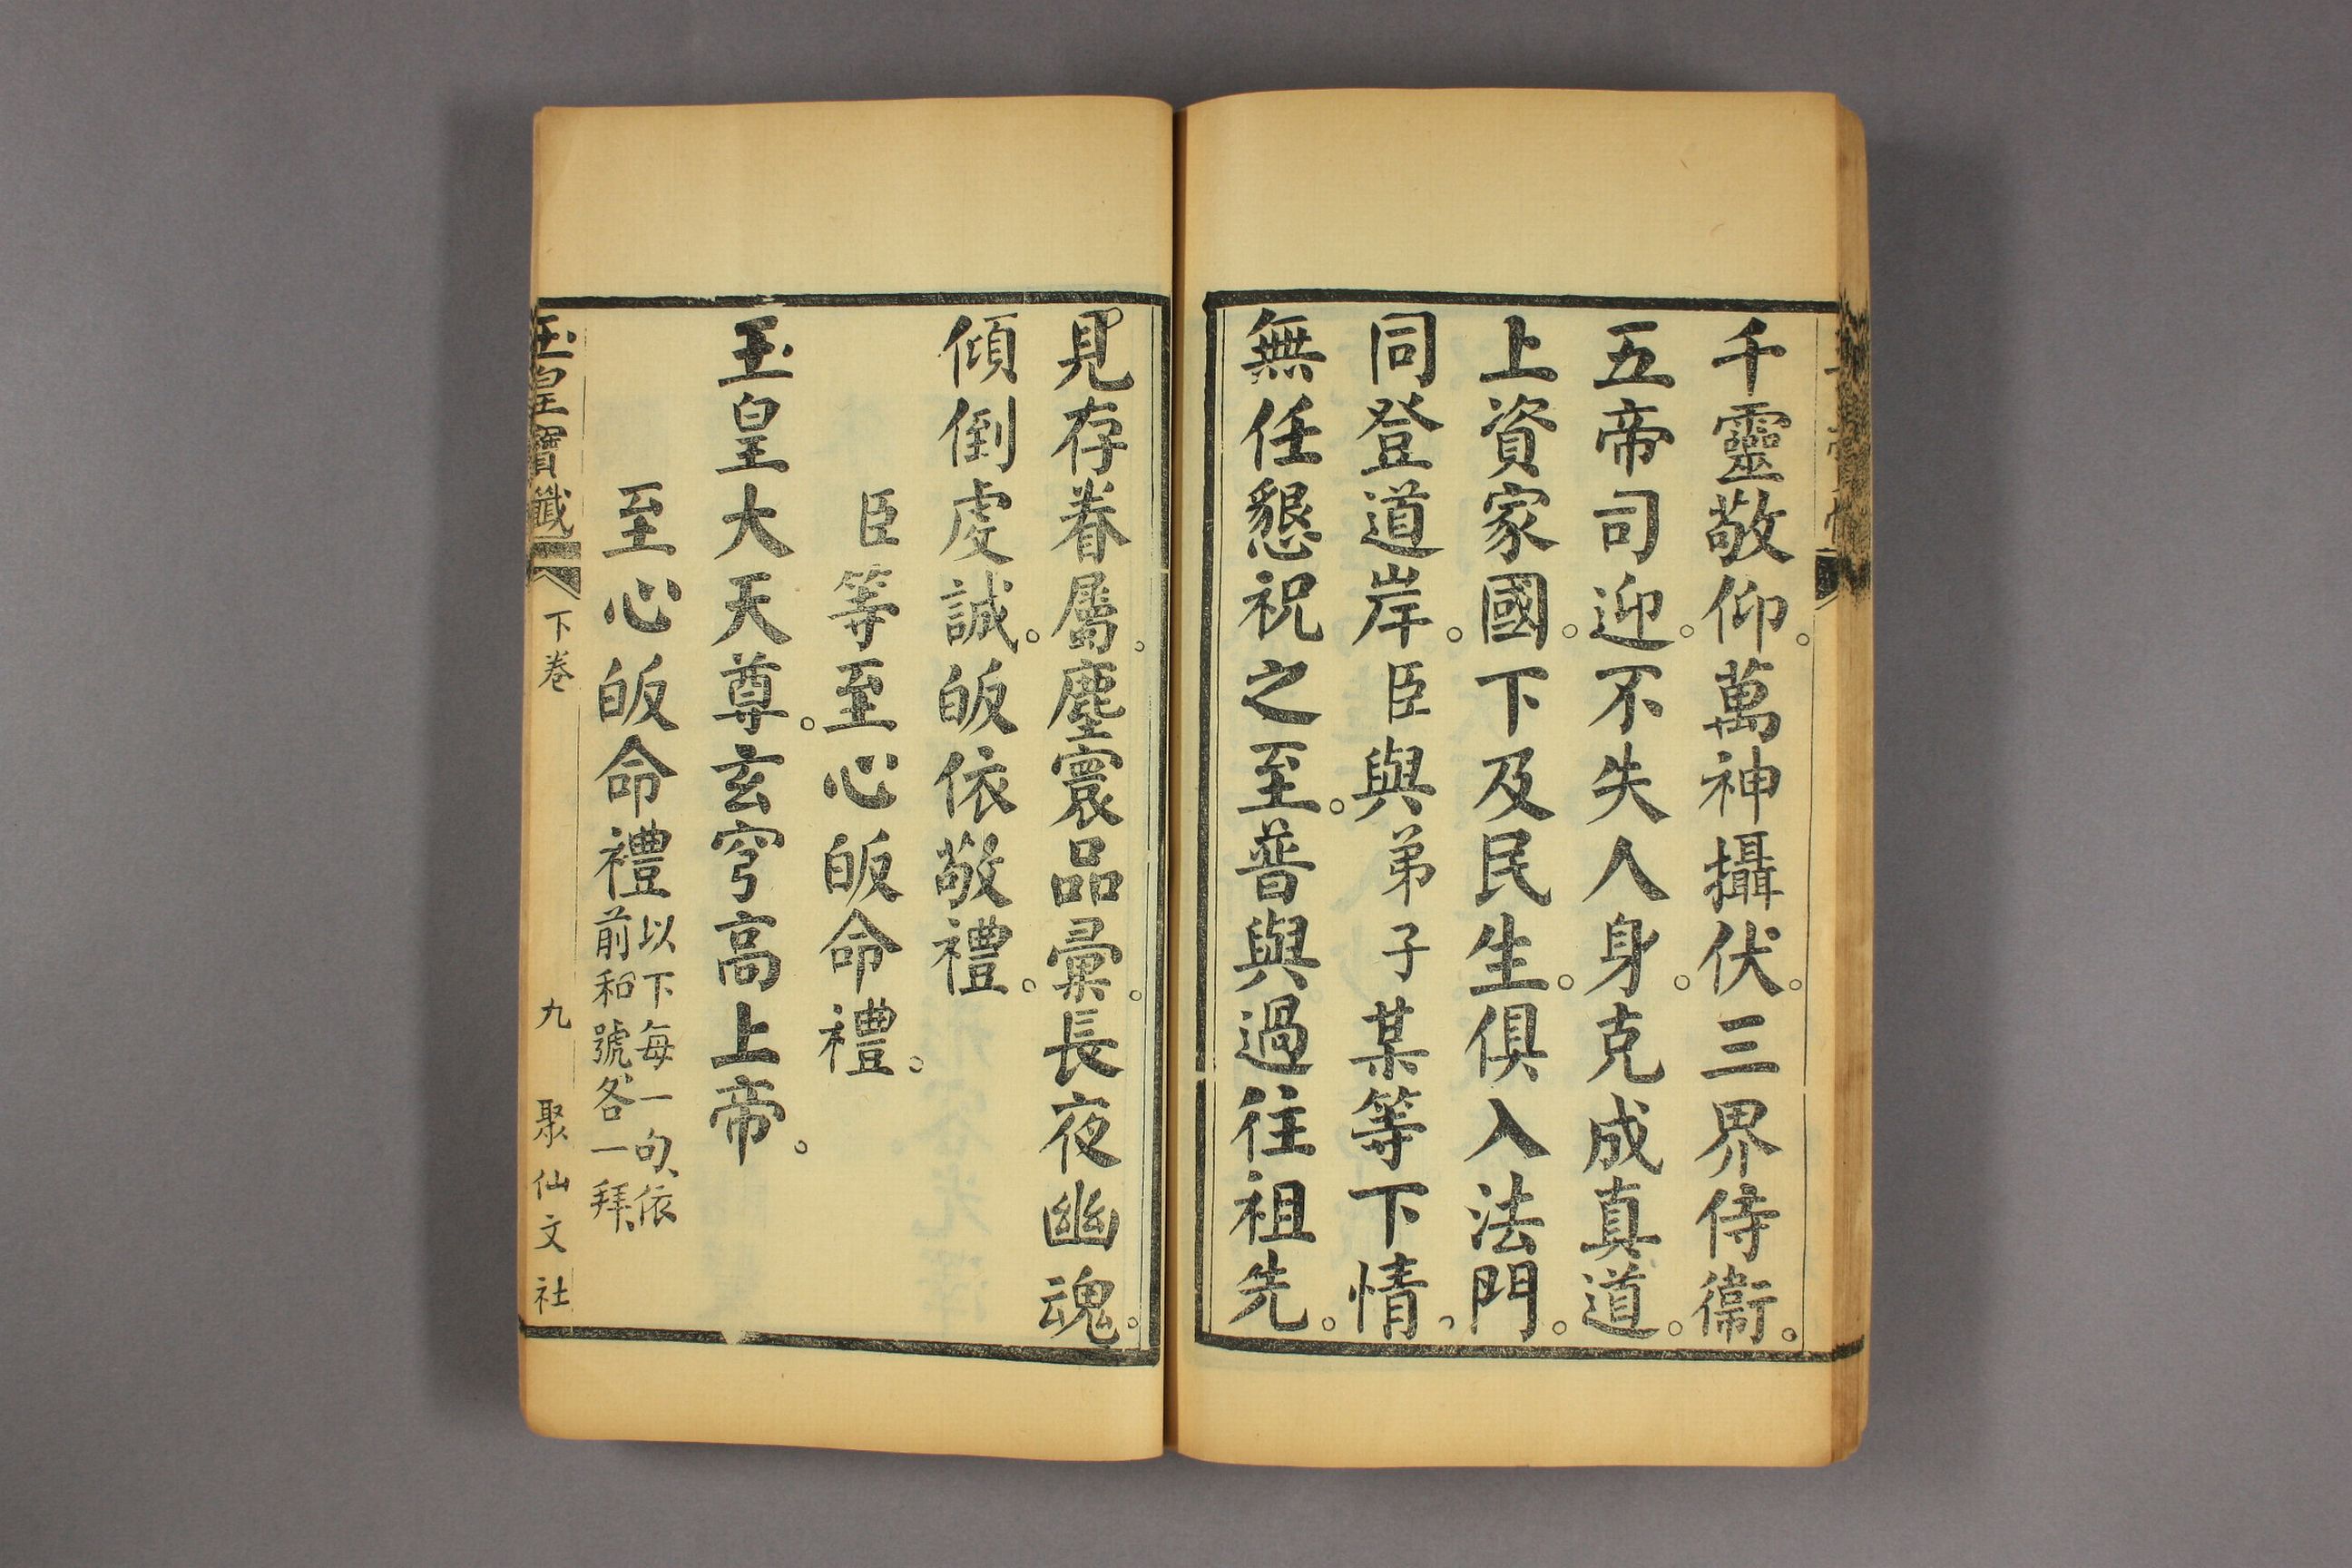 千靈敬仰。萬神攝伏。三界侍衞。
五帝司迎。不失人身。克成真道。
上資家國。下及民生。俱入法門。
同登道岸。臣與弟子某等下情。
無任懇祝之至。普與過往祖先。
見存眷屬。塵寰品彙。長夜幽魂。
傾倒虔誠。皈依敬禮。
臣等至心皈命禮。
玉皇大天尊。玄穹高上帝。
至心皈命禮以下每一句、依
前和號、各一拜、
玉皇寶懺 下卷 九 聚仙文社